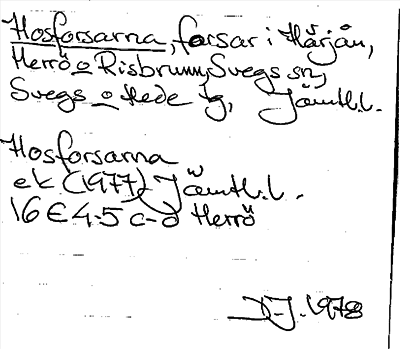 Hosforsarna, forsar i Härjån,
Herrö o Risbrunn, Svegs sn,
Svegs o Hede tg, Jämtl.l.
Hosforsarna
ek (1977) Jämtl.l.
16 E 4-5 c-d Herrö
D-J. 1978